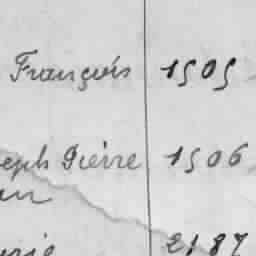 François 1505
seph Pierre 1506
2187